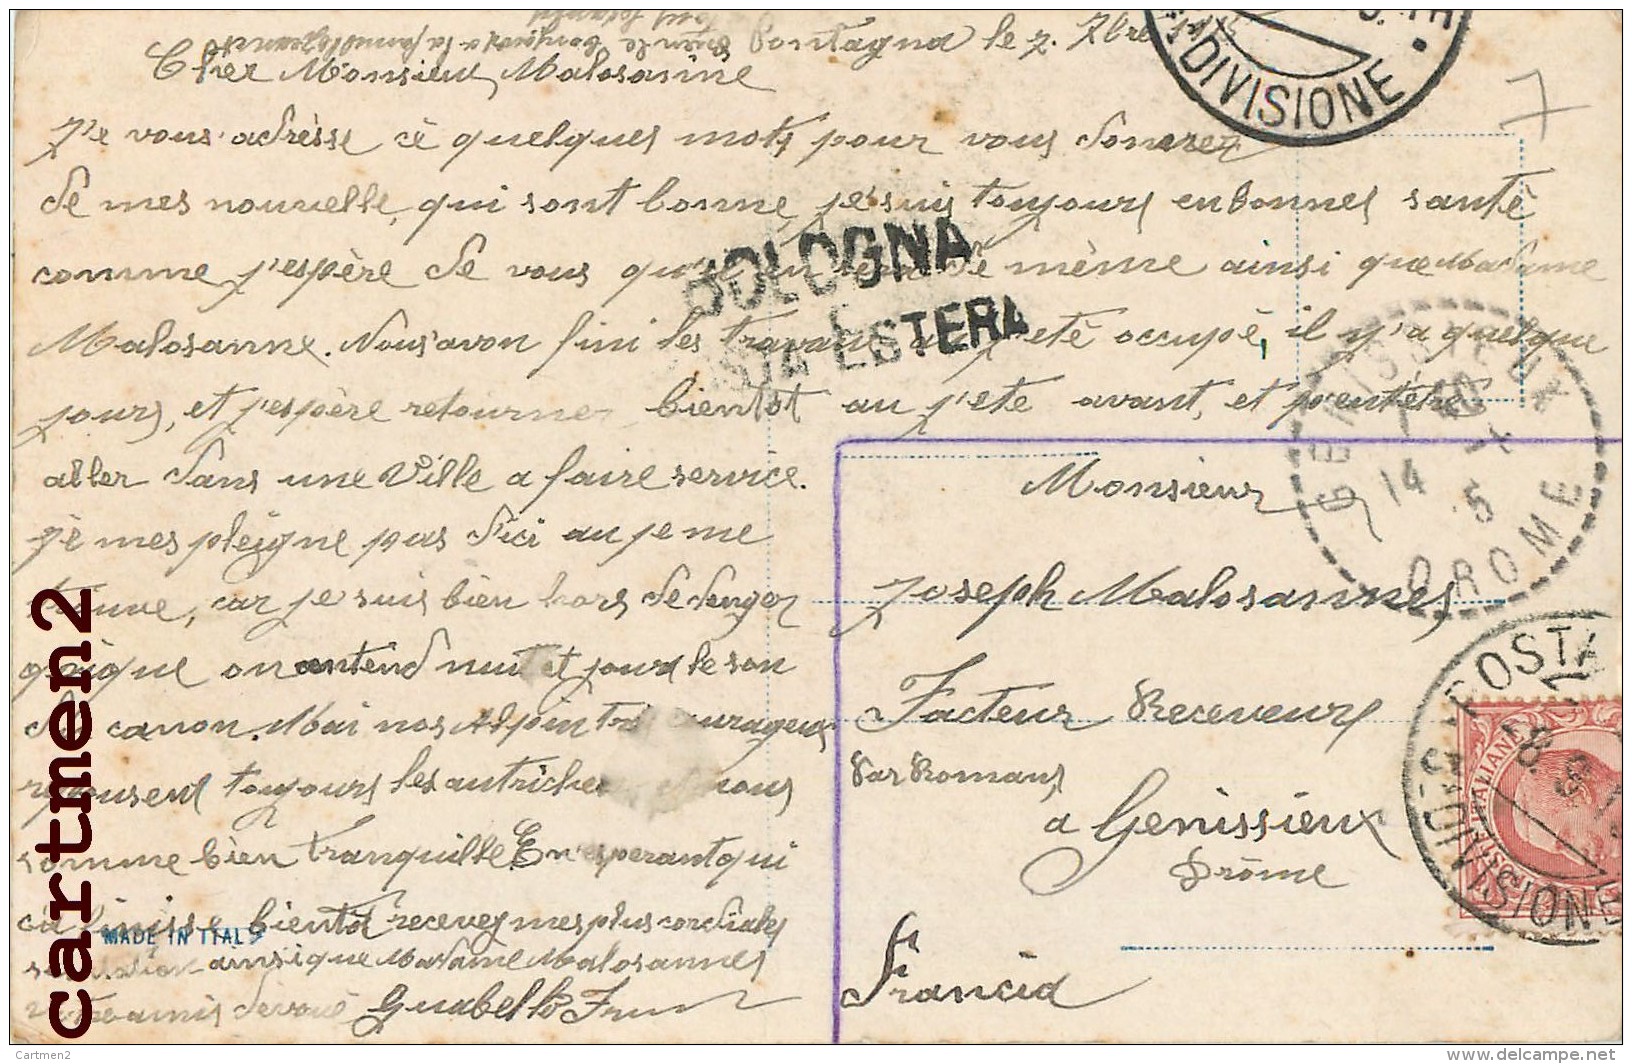 Montagna le 7. 7bre 1915
Cher Monsieur Malosanne
J'e vous adrèsse cè quelques mots, pour vous donnrer
de mes nouvelle, qui sont bonne, je suis toujours en bonnes santè
comme j'espère de vous qu'il en sera de mème ainsi que Madame
Malosanne. Nous avon fini les travaux au j'etè occupè, il y'a quelque
jours, et j'espère retourner bientot au j'ete avant, et peutétre
aller dans une Ville a faire service.
Jè mes pleigne pas d'ici au je me
treuve, car je suis bièn hors de denger
quique on antend nuit et jour le son
du canon. Mai nos Alpin tres courageux
repousent toujours les autrichens et nous
somme bièn tranquille En esperant qui
ça finisse bientot recevez mes plus cordiales
salutation ainsi que Madame Malosannes
votre amis devouè Guabello
Monsieur
Joseph Malosannes
Facteur Receveur
Par Romans
a Genissieux
Drôme
Francia
DIVISIONE
BOLOGNA
POSTA ESTERA
GENISSIEUX
14
5
DROME
POSTA
DIVISIONE
ITALIANE
MADE IN ITALY
7
cartmen2
Cartmen2
www.delcampe.net